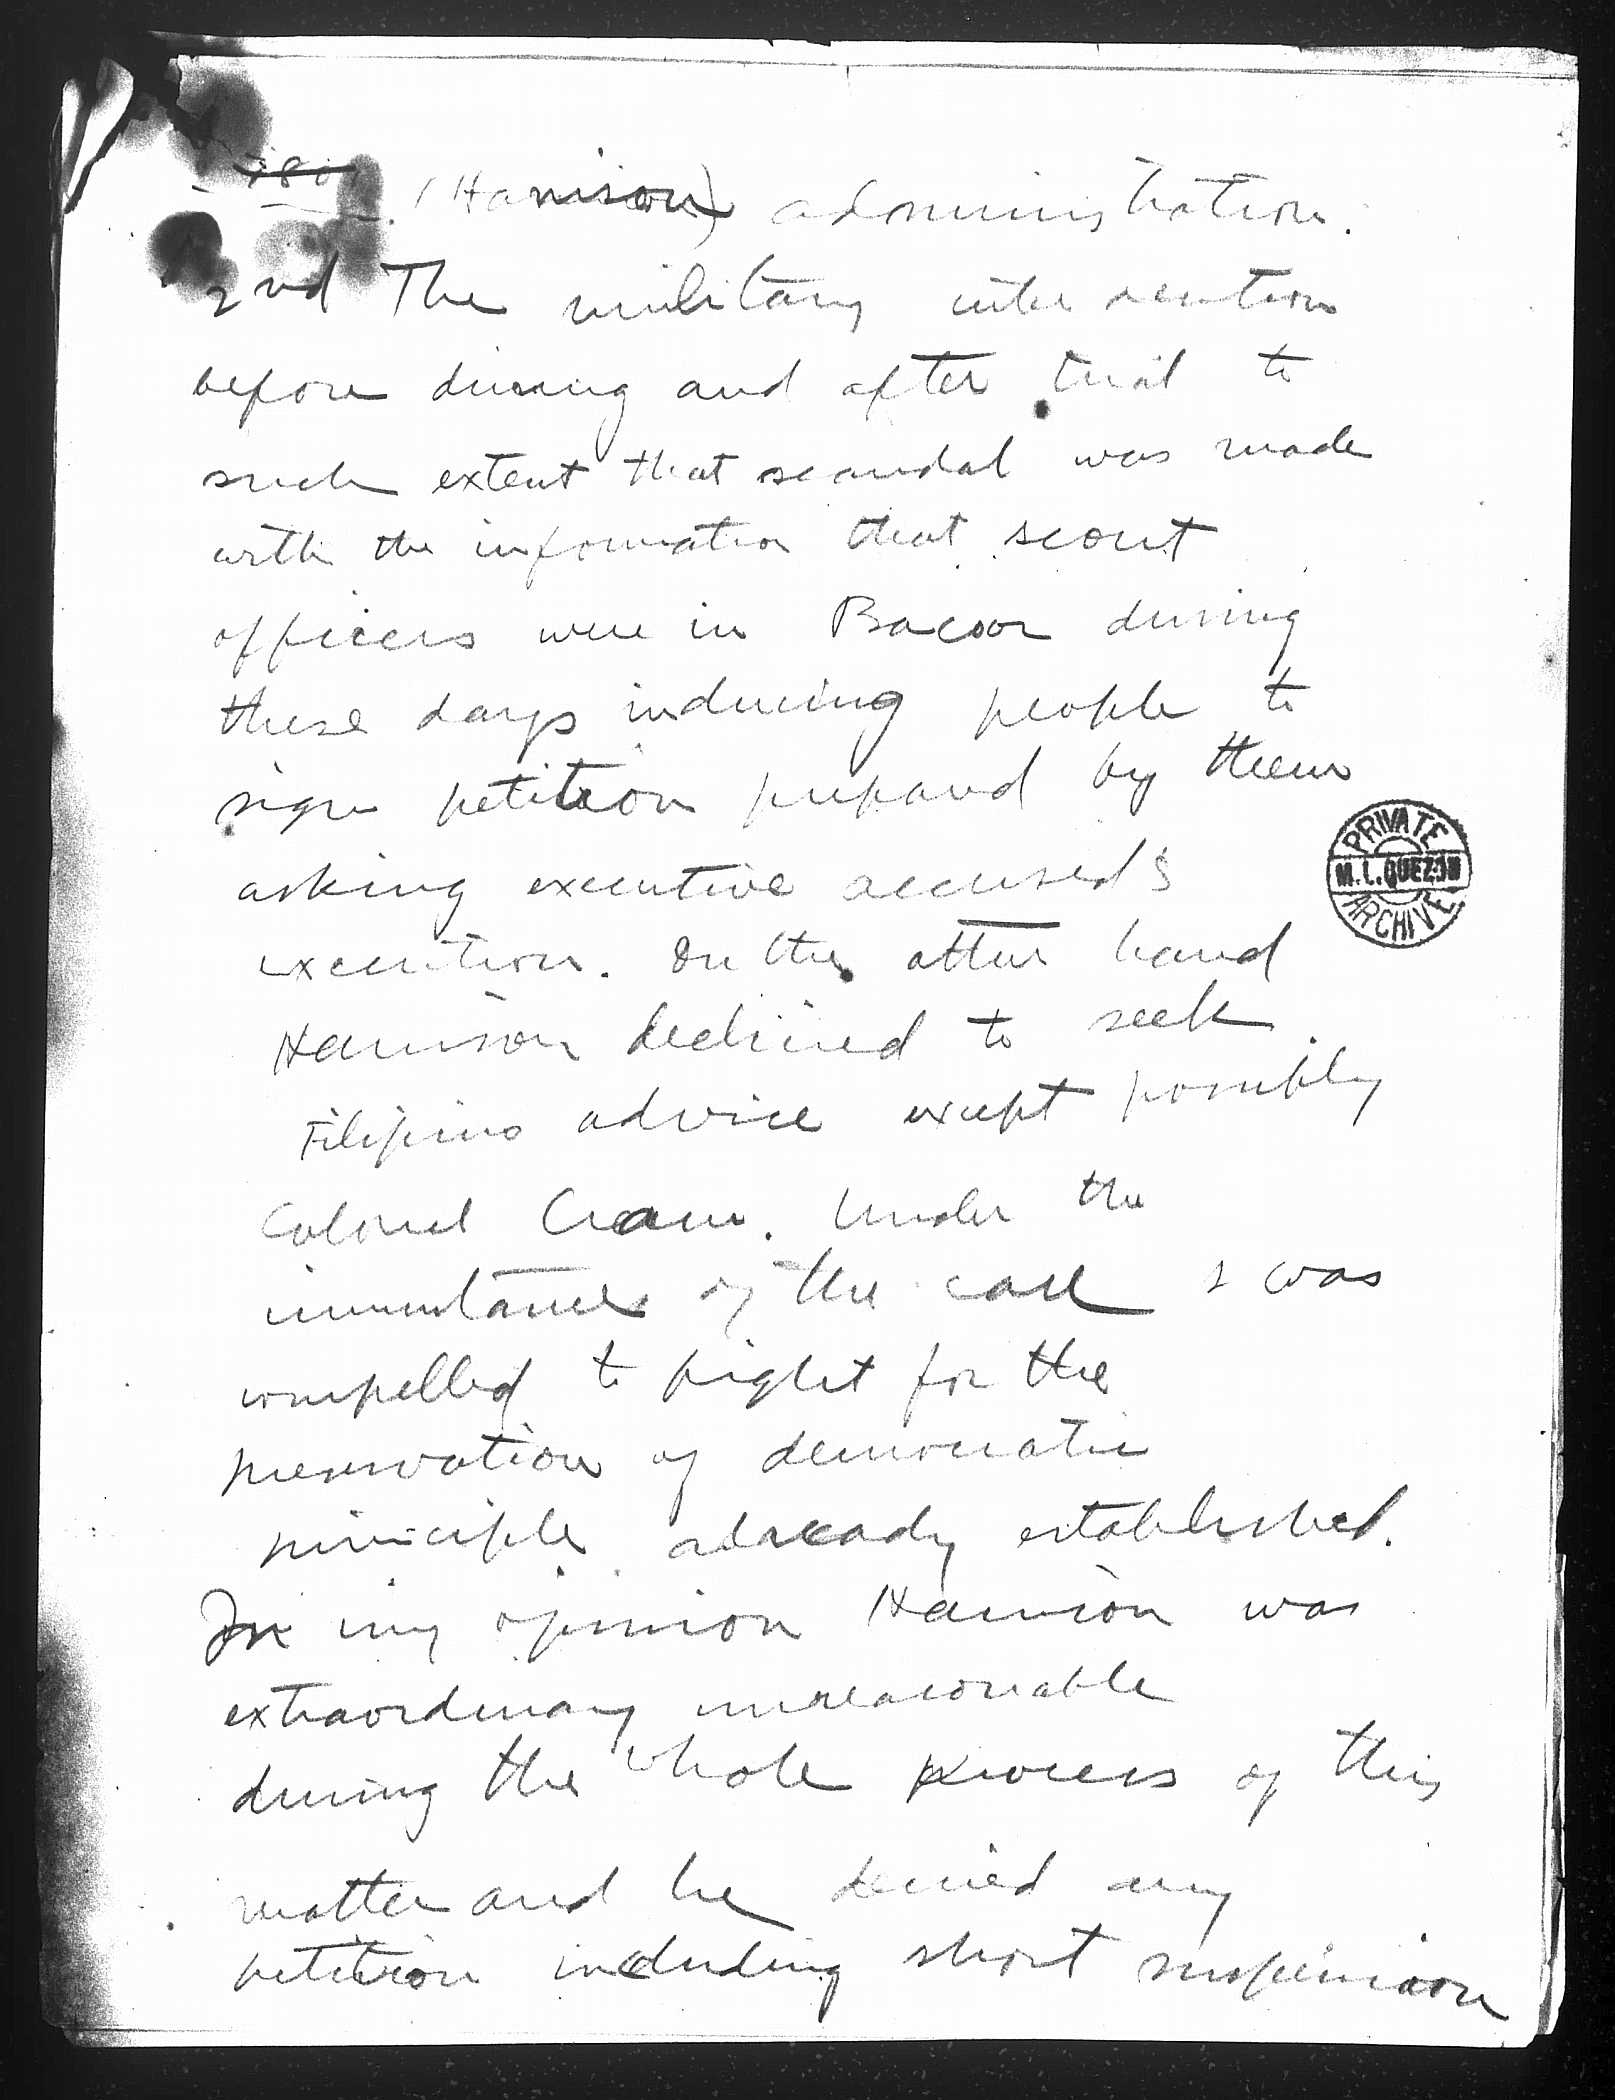 (Harrison) administration.
2nd The military intervention
before during and after trial to
such extent that scandal was made
with the information that scout
officers were in Bacoor during
these days inducing people to
sign petition prepared by them
asking executive accused's
execution. On the other hand
Harrison declined to seek
Filipino advice except possibly
Colonel Crame. Under the
circumstances of the case I was
compelled to fight for the
preservation of democratic
principles already established.
In my opinion Harrison was
extraordinary unreasonable
during the whole process of this
matter and he denied any
petition including short suspension
PRIVATE
M. L. QUEZON
ARCHIVE